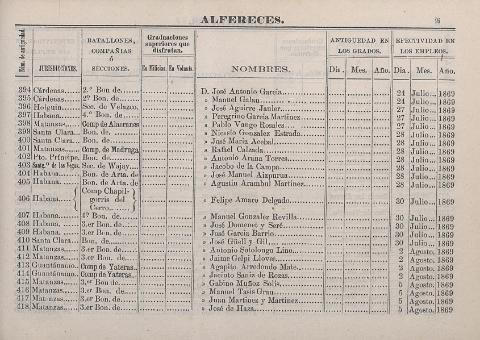 ALFERECES.
Núm. de antigüedad.
JURISDICCIONES.
BATALLONES,
COMPAÑIAS
ó
SECCIONES.
Graduaciones
superiores que
disfrutan.
En Milicias. En Volunts.
NOMBRES.
ANTIGUEDAD EN
LOS GRADOS.
Dia. Mes. Año.
EFECTIVIDAD EN
LOS EMPLEOS.
Dia. Mes. Año.
394 Cárdenas 2.º Bon. de D. José Antonio García 24 Julio 1869
395 Cárdenas 2º Bon. de » Manuel Galan 24 Julio 1869
396 Holguin Sec. de Velazco » José Aguirre Janler 27 Julio 1869
397 Habana 4.º Bon. de » Peregrino García Martinez 27 Julio 1869
398 Matanzas Comp. de Alacranes » Pablo Vango Rosales 27 Julio 1869
399 Santa Clara Bon. de » Nicasio Gonzalez Estrada 28 Julio 1869
400 Santa Clara Bon. de » José María Acebal 28 Julio 1869
401 Matanzas Comp. de Madruga » Rafael Calzada 28 Julio 1869
402 Pto. Príncipe Bon. de » Antonio Arana Torres 28 Julio 1869
403 Santi.º de las Vegas Sec. de Wajay » Jacobo de la Campa 28 Julio 1869
404 Habana Bon. de Art. de » José Manuel Aizpurua 28 Julio 1869
405 Habana Bon. de Art. de » Agustin Arambul Martinez 28 Julio 1869
406 Habana Comp Chapil-
gorris del
Cerro » Felipe Amaro Delgado 30 Julio 1869
407 Habana 4º Bon. de » Manuel Gonzalez Revilla 30 Julio 1869
408 Habana 3.er Bon. de » José Domenec y Seré 30 Julio 1869
409 Habana 3.er Bon. de » José García Barrio 30 Julio 1869
410 Santa Clara Bon. de » José Güell y Gil 30 Julio 1869
411 Matanzas 3.er Bon. de » Antonio Sotolongo Lino 2 Agosto 1869
412 Matanzas 3.er Bon. de » Jaime Gelpi Lloves 2 Agosto 1869
413 Guantánamo Comp de Yateras » Agapito Arredondo Mate 2 Agosto 1869
414 Guantánamo Comp de Yateras » Jacinto Sanz de Rozas 2 Agosto 1869
415 Matanzas 3.er Bon. de » Gabino Muñoz Solis 5 Agosto 1869
416 Matanzas 3.er Bon. de » Manuel Tasis Grau 5 Agosto 1869
417 Matanzas 3.er Bon. de » Juan Martinez y Martinez 5 Agosto 1869
418 Matanzas 3.er Bon. de » José de Haza 5 Agosto 1869